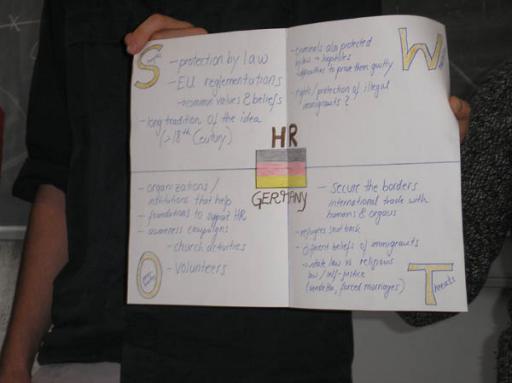 S
- protection by law
- EU reglementations
→ common values & beliefs
- long tradition of the idea
(→ 18th Century)
W
- criminals also protected
by law →
to prove them guilty
- rights/protection of illegal
immigrants?
HR
GERMANY
- organizations/
institutions that help
- foundations to support HR
- awareness campaigns
- church activities
- volunteers
O
- Secure the borders
international trade with
humans & organs
- refugees sent back
- different beliefs of immigrants
→ state law vs religious
law / self-justice
(vendetta, forced marriages)
T
Threats